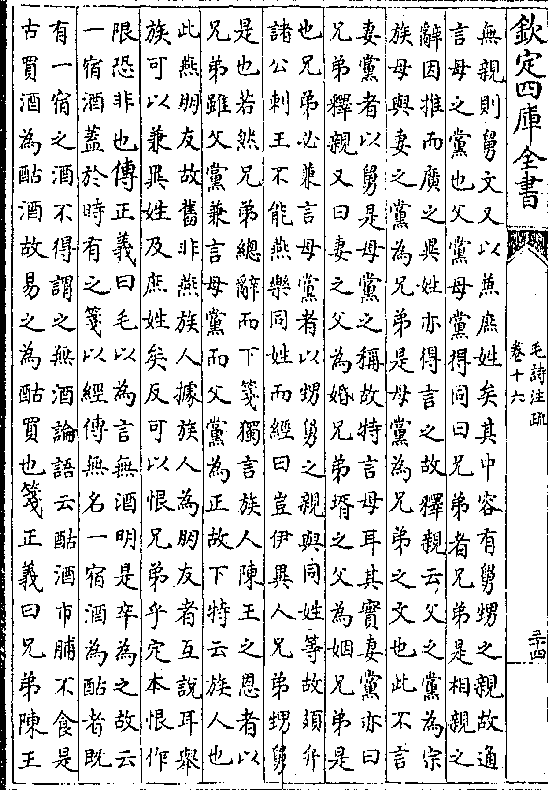 欽定四庫全書
毛詩注疏
卷十六
三十四
無親則舅文又以兼庶姓矣其中容有舅甥之親故通
言母之黨也父黨母黨得同曰兄弟者兄弟是相親之
辭因推而廣之異姓亦得言之故釋親云父之黨為宗
族母與妻之黨為兄弟是母黨為兄弟之文也此不言
妻黨者以舅是母黨之稱故特言母耳其實妻黨亦曰
兄弟釋親又曰妻之父為婚兄弟壻之父為姻兄弟是
也兄弟必兼言母黨者以甥舅之親與同姓等故頍弁
諸公刺王不能燕樂同姓而經曰豈伊異人兄弟甥舅
是也若然兄弟總辭而下箋獨言族人陳王之恩者以
兄弟雖父黨兼言母黨而父黨為正故下特云族人也
此燕朋友故舊非燕族人據族人為朋友者互說耳舉
族可以兼異姓及庶姓矣反可以恨兄弟乎定本恨作
限恐非也傳正義曰毛以為言無酒明是卒為之故云
一宿酒蓋於時有之箋以經傳無名一宿酒為酤者既
有一宿之酒不得謂之無酒論語云酤酒市脯不食是
古買酒為酤酒故易之為酤買也箋正義曰兄弟陳王